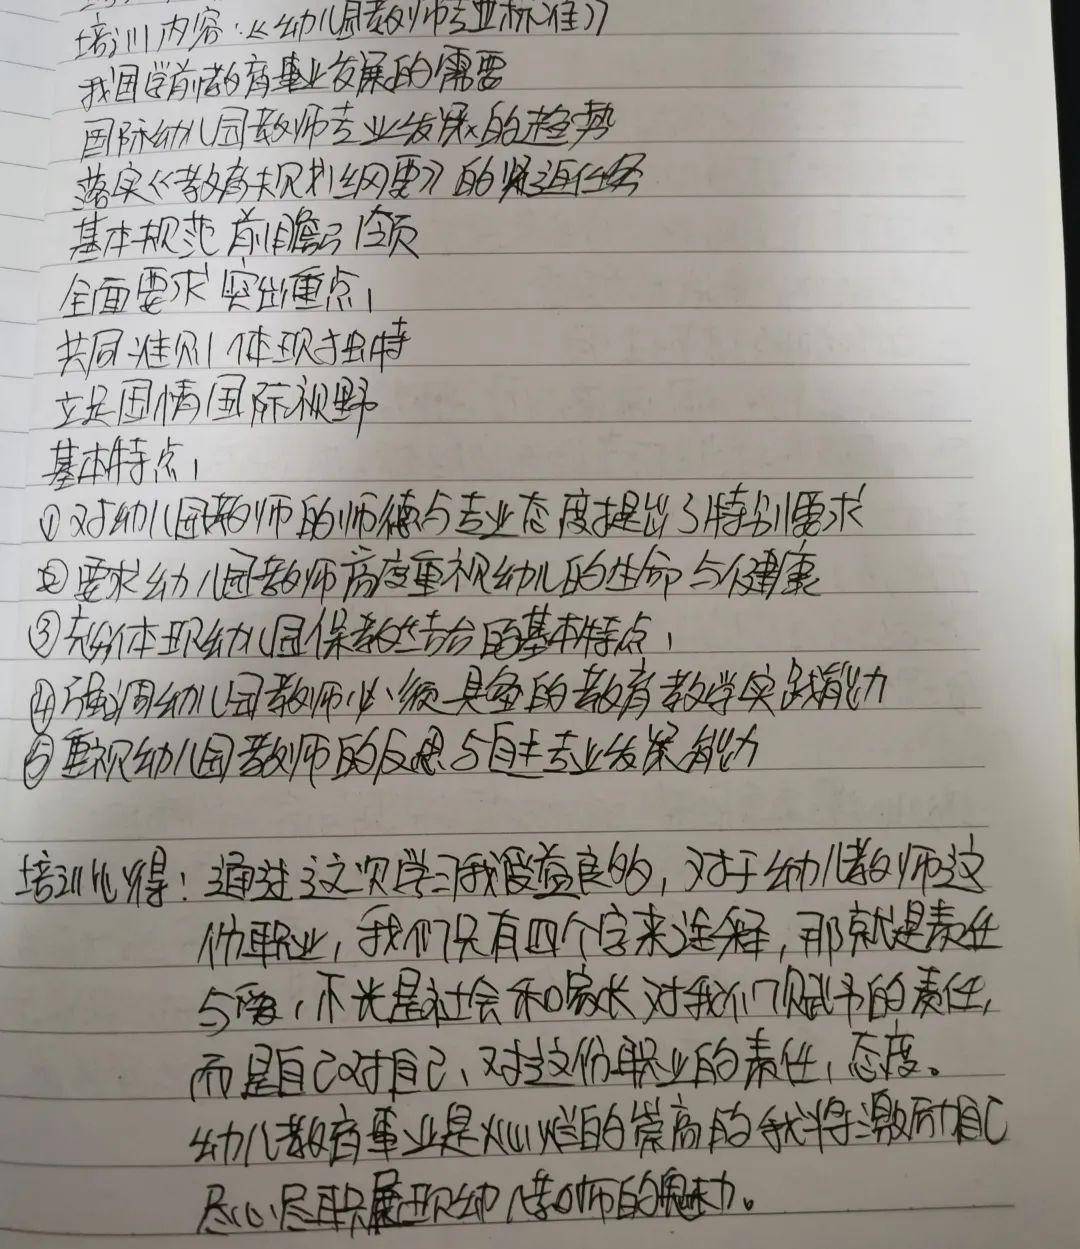 培训内容:《幼儿园教师专业标准》
我国学前教育事业发展的需要
国际幼儿园教师专业发展的趋势
落实《教育规划纲要》的紧迫任务
基本规范 前瞻引领
全面要求 突出重点,
共同准则 体现独特
立足国情国际视野
基本特点,
①对幼儿园教师的师德与专业态度提出了特别要求
②要求幼儿园教师高度重视幼儿的生命与健康
③充分体现幼儿园保教结合的基本特点,
④强调幼儿园教师必须具备的教育教学实践能力
⑤重视幼儿园教师的反思与自主专业发展能力
培训心得:通过这次学习我受益良的,对于幼儿教师这
份职业,我们只有四个字来诠释,那就是责任
与爱,不光是社会和家长对我们赋予的责任,
而是自己对自己、对这份职业的责任,态度。
幼儿教育事业是灿烂的崇高的我将激励自己
尽心尽职展现幼儿教师的魅力。